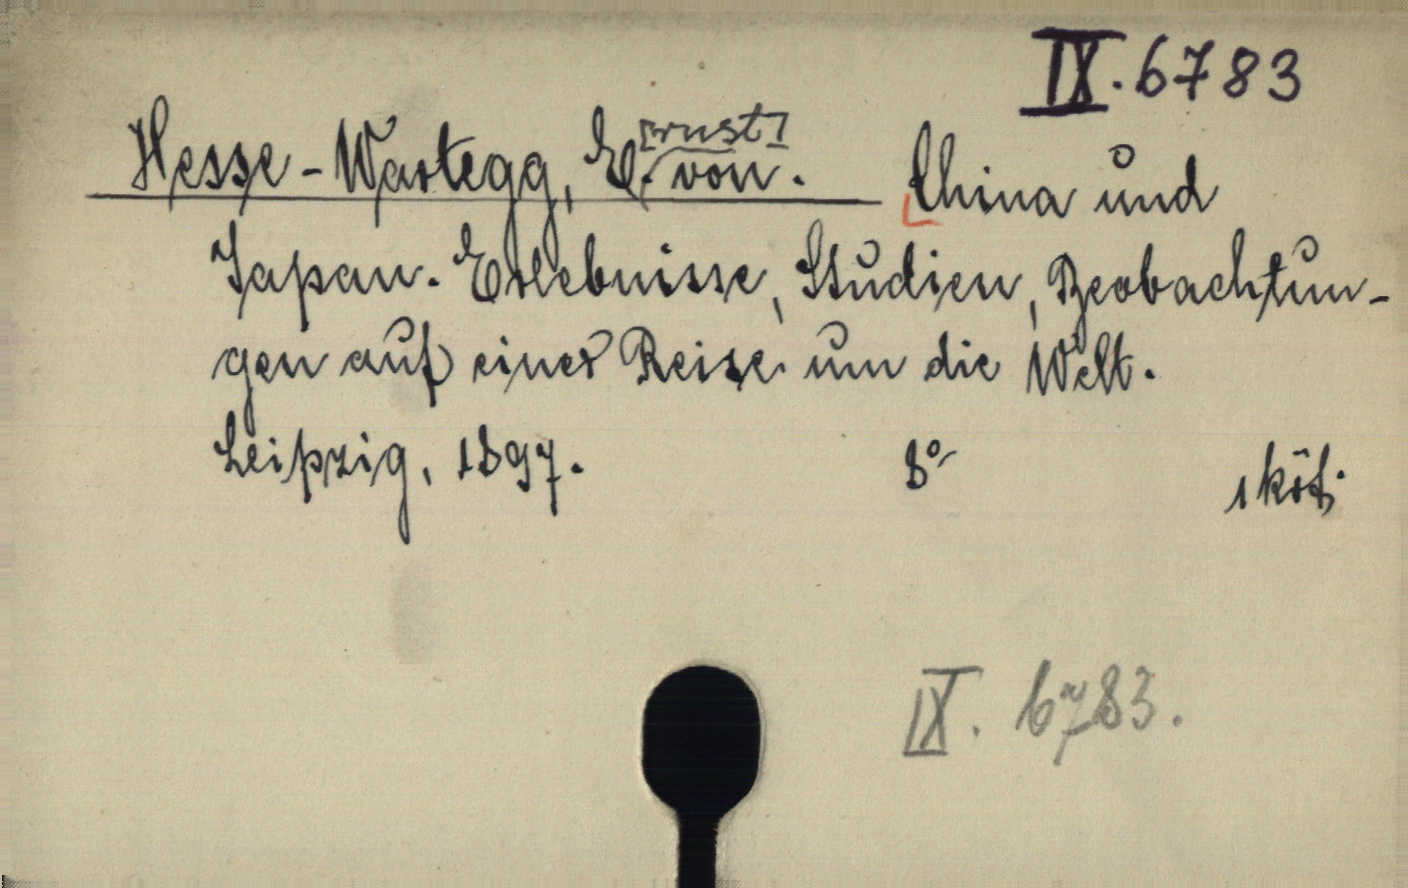 IX. 6783
Hesse-Wartegg, E[rnst]. von. China und
Japan. Erlebnisse, Studien, Beobachtun-
gen auf einer Reise um die Welt.
Leipzig, 1897. 8° 1 köt.
IX. 6783.